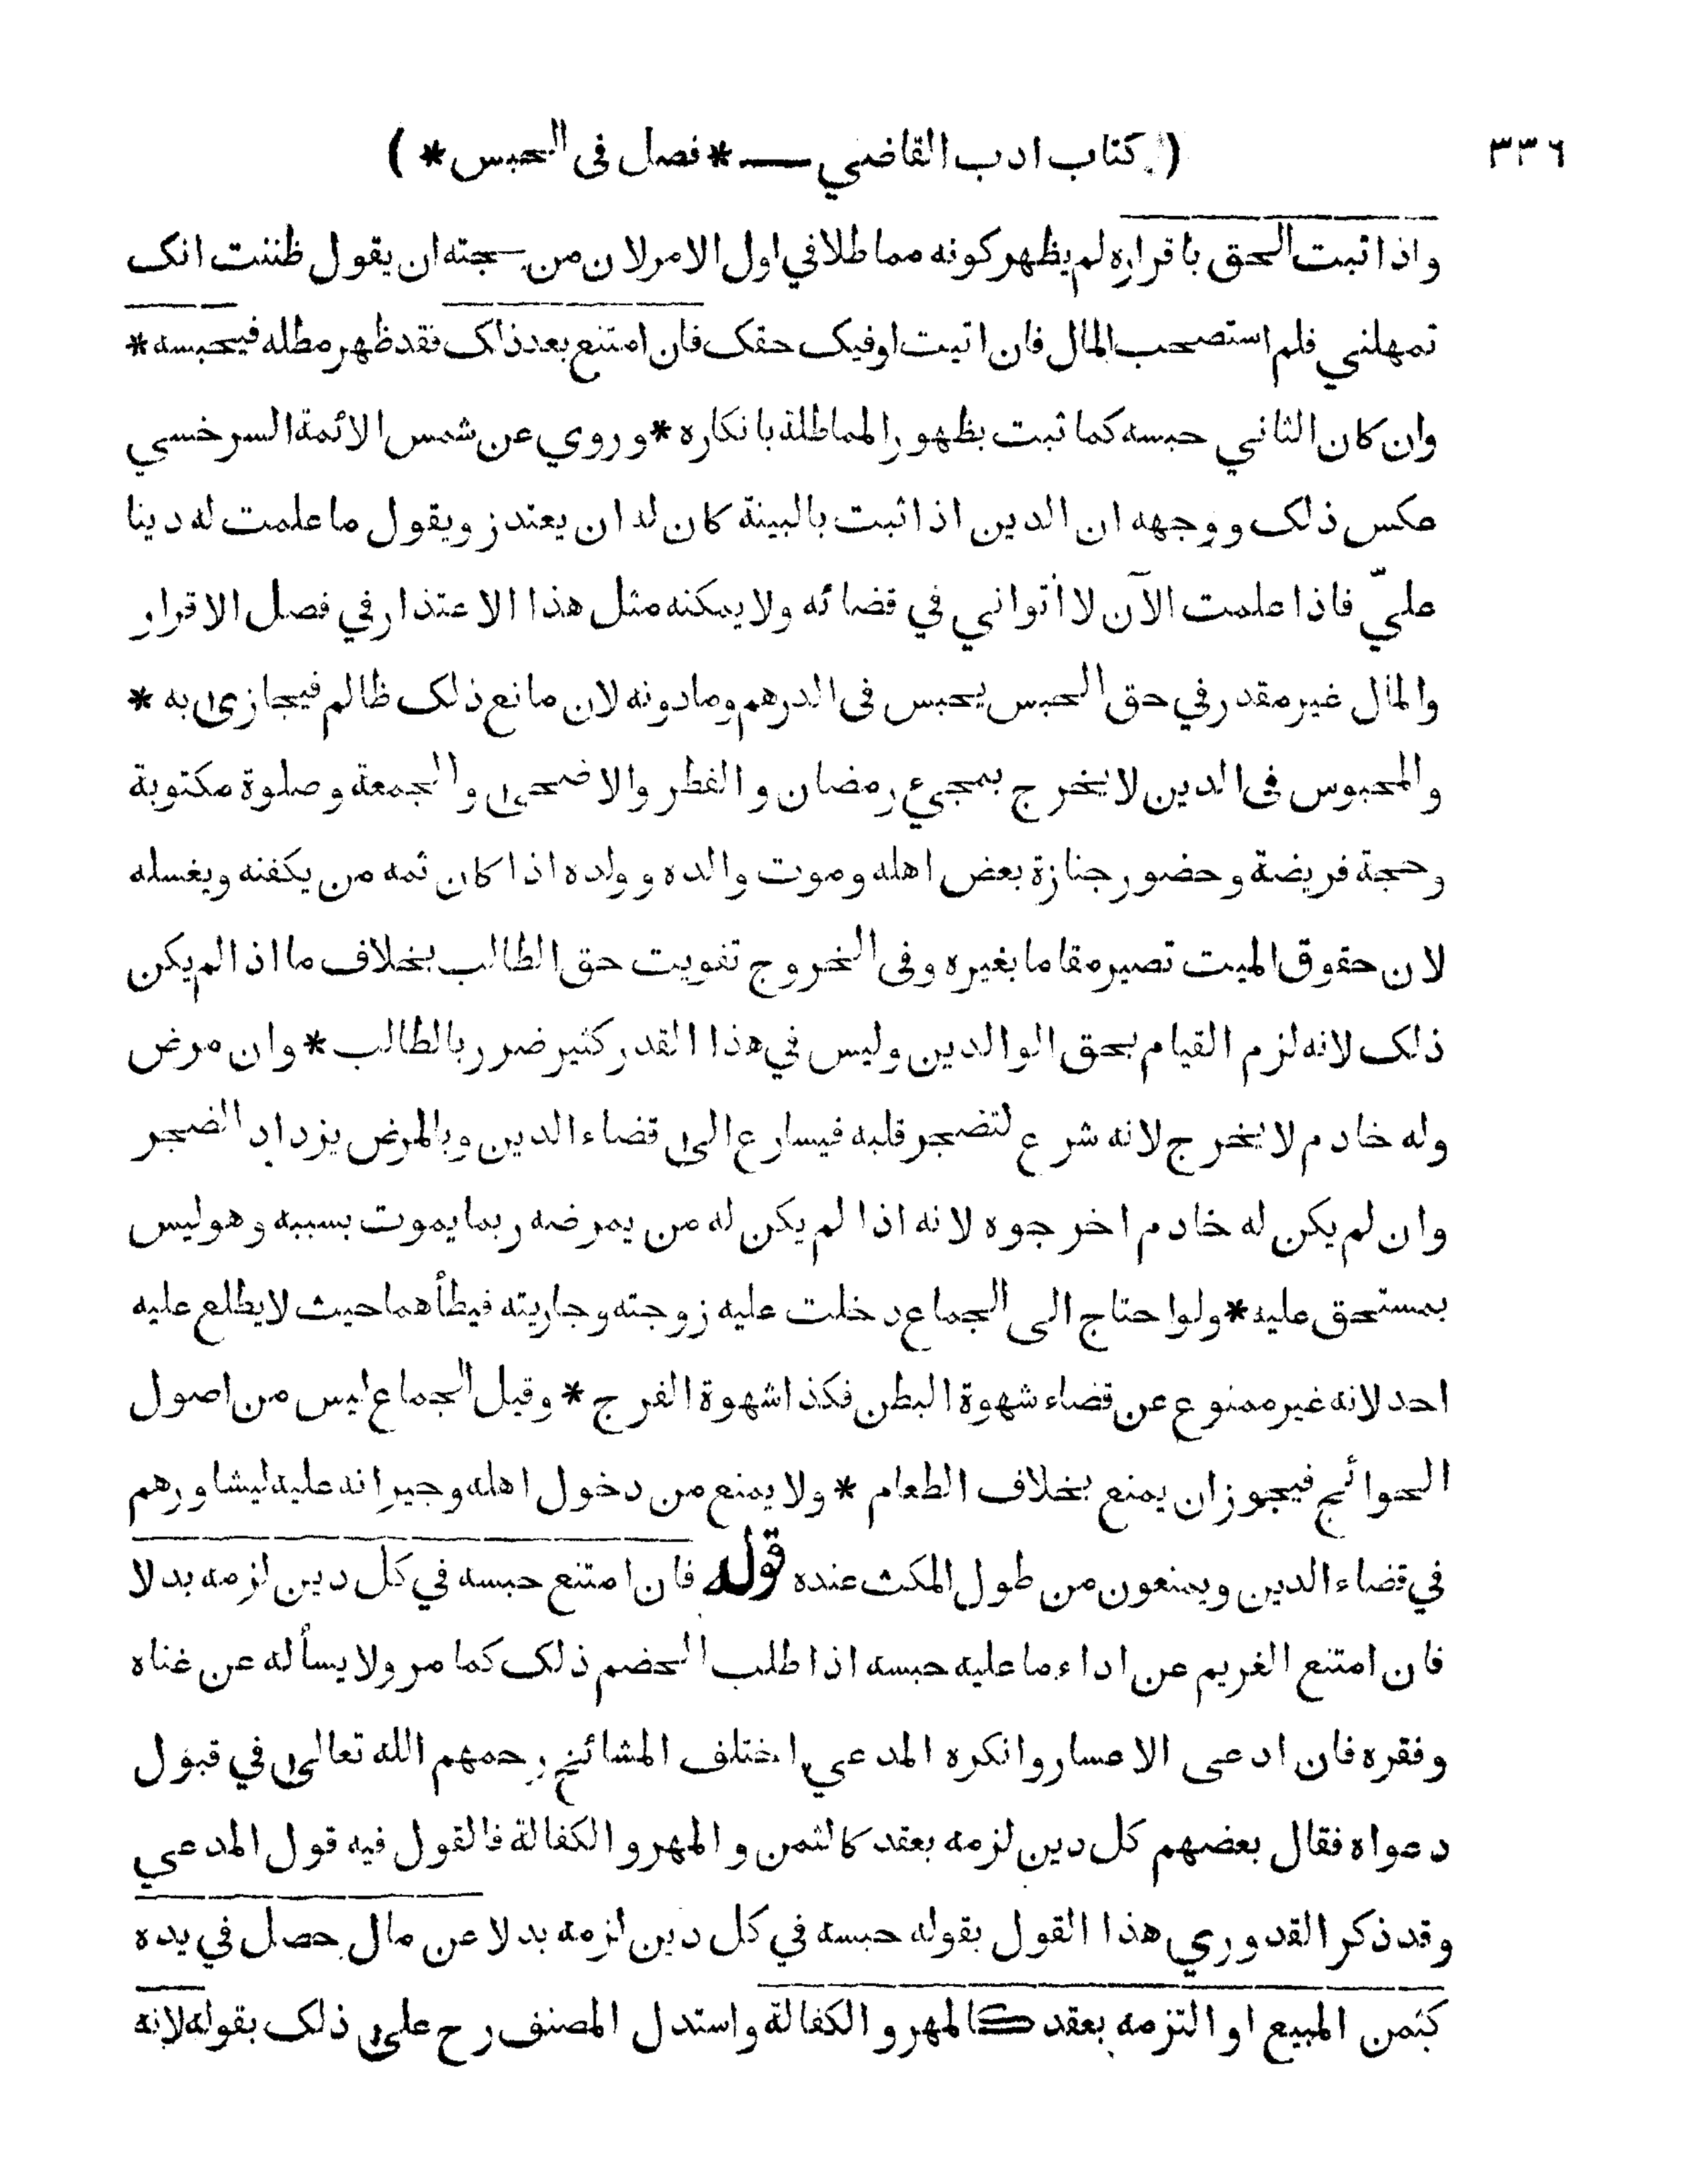 (* كتاب ادب القاضي — * فصل فى الحبس *) ٣٣٦
واذا ثبت الحق باقراره لم يظهر كونه مماطلا في اول الامر لان من حجته ان يقول ظننت انك
تمهلني فلم استصحب المال فان اتيت اوفيك حقك فان امتنع بعد ذلك فقد ظهر مطله فيحبسه *
وان كان الثاني حبسه كما ثبت بظهور المماطلة بانكاره * وروي عن شمس الائمة السرخسي
عكس ذلك ووجهه ان الدين اذا ثبت بالبينة كان له ان يعتذر ويقول ما علمت له دينا
عليّ فاذا علمت الآن لا أتواني في قضائه ولا يمكنه مثل هذا الاعتذار في فصل الاقرار
والمال غير مقدر في حق الحبس يحبس فى الدرهم وما دونه لان مانع ذلك ظالم فيجازى به *
والمحبوس فى الدين لا يخرج بمجيء رمضان والفطر والاضحى والجمعة وصلوة مكتوبة
وحجة فريضة وحضور جنازة بعض اهله وموت والده وولده اذا كان ثمه من يكفنه ويغسله
لان حقوق الميت تصير مقاما بغيره وفى الخروج تفويت حق الطالب بخلاف ما اذا لم يكن
ذلك لانه لزم القيام بحق الوالدين وليس في هذا القدر كثير ضرر بالطالب * وان مرض
وله خادم لا يخرج لانه شرع لتضجر قلبه فيسارع الى قضاء الدين وبالمرض يزداد الضجر
وان لم يكن له خادم اخرجوه لانه اذا لم يكن له من يمرضه ربما يموت بسببه وهو ليس
بمستحق عليه * ولو احتاج الى الجماع دخلت عليه زوجته وجاريته فيطأهما حيث لا يطلع عليه
احد لانه غير ممنوع عن قضاء شهوة البطن فكذا شهوة الفرج * وقيل الجماع ليس من اصول
الحوائج فيجوز ان يمنع بخلاف الطعام * ولا يمنع من دخول اهله وجيرانه عليه ليشاورهم
في قضاء الدين ويمنعون من طول المكث عنده قوله فان امتنع حبسه في كل دين لزمه بدلا
فان امتنع الغريم عن اداء ما عليه حبسه اذا طلب الخصم ذلك كما مر ولا يسأله عن غناه
وفقره فان ادعى الاعسار وانكره المدعي اختلف المشائخ رحمهم الله تعالى في قبول
دعواه فقال بعضهم كل دين لزمه بعقد كالثمن والمهر والكفالة فالقول فيه قول المدعي
وقد ذكر القدوري هذا القول بقوله حبسه في كل دين لزمه بدلا عن مال حصل في يده
كثمن المبيع او التزمه بعقد كالمهر والكفالة واستدل المصنف رح على ذلك بقوله لانه